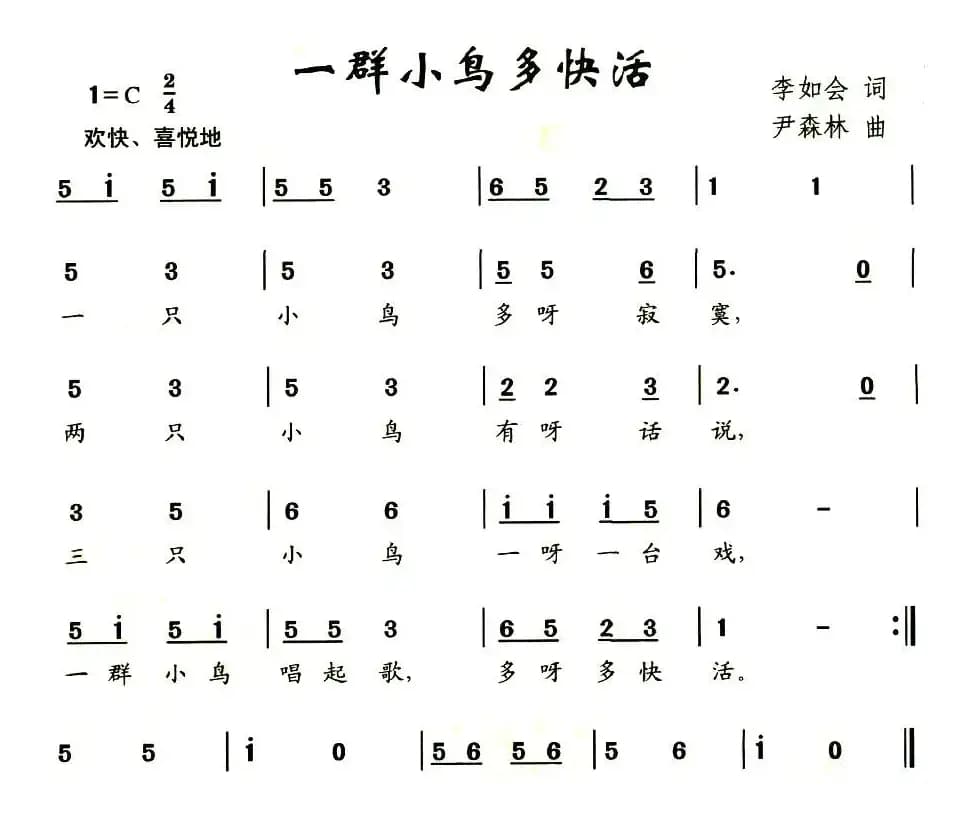 一群小鸟多快活
1=C 2/4
李如会 词
欢快、喜悦地
尹森林 曲
5 i 5 i | 5 5 3 | 6 5 2 3 | 1 1 |
5 3 | 5 3 | 5 5 6 | 5. 0 |
一 只 小 鸟 多 呀 寂 寞,
5 3 | 5 3 | 2 2 3 | 2. 0 |
两 只 小 鸟 有 呀 话 说,
3 5 | 6 6 | i i i 5 | 6 – |
三 只 小 鸟 一 呀 一 台 戏,
5 i 5 i | 5 5 3 | 6 5 2 3 | 1 – :||
一 群 小 鸟 唱 起 歌, 多 呀 多 快 活。
5 5 | i 0 | 5 6 5 6 | 5 6 | i 0 ||